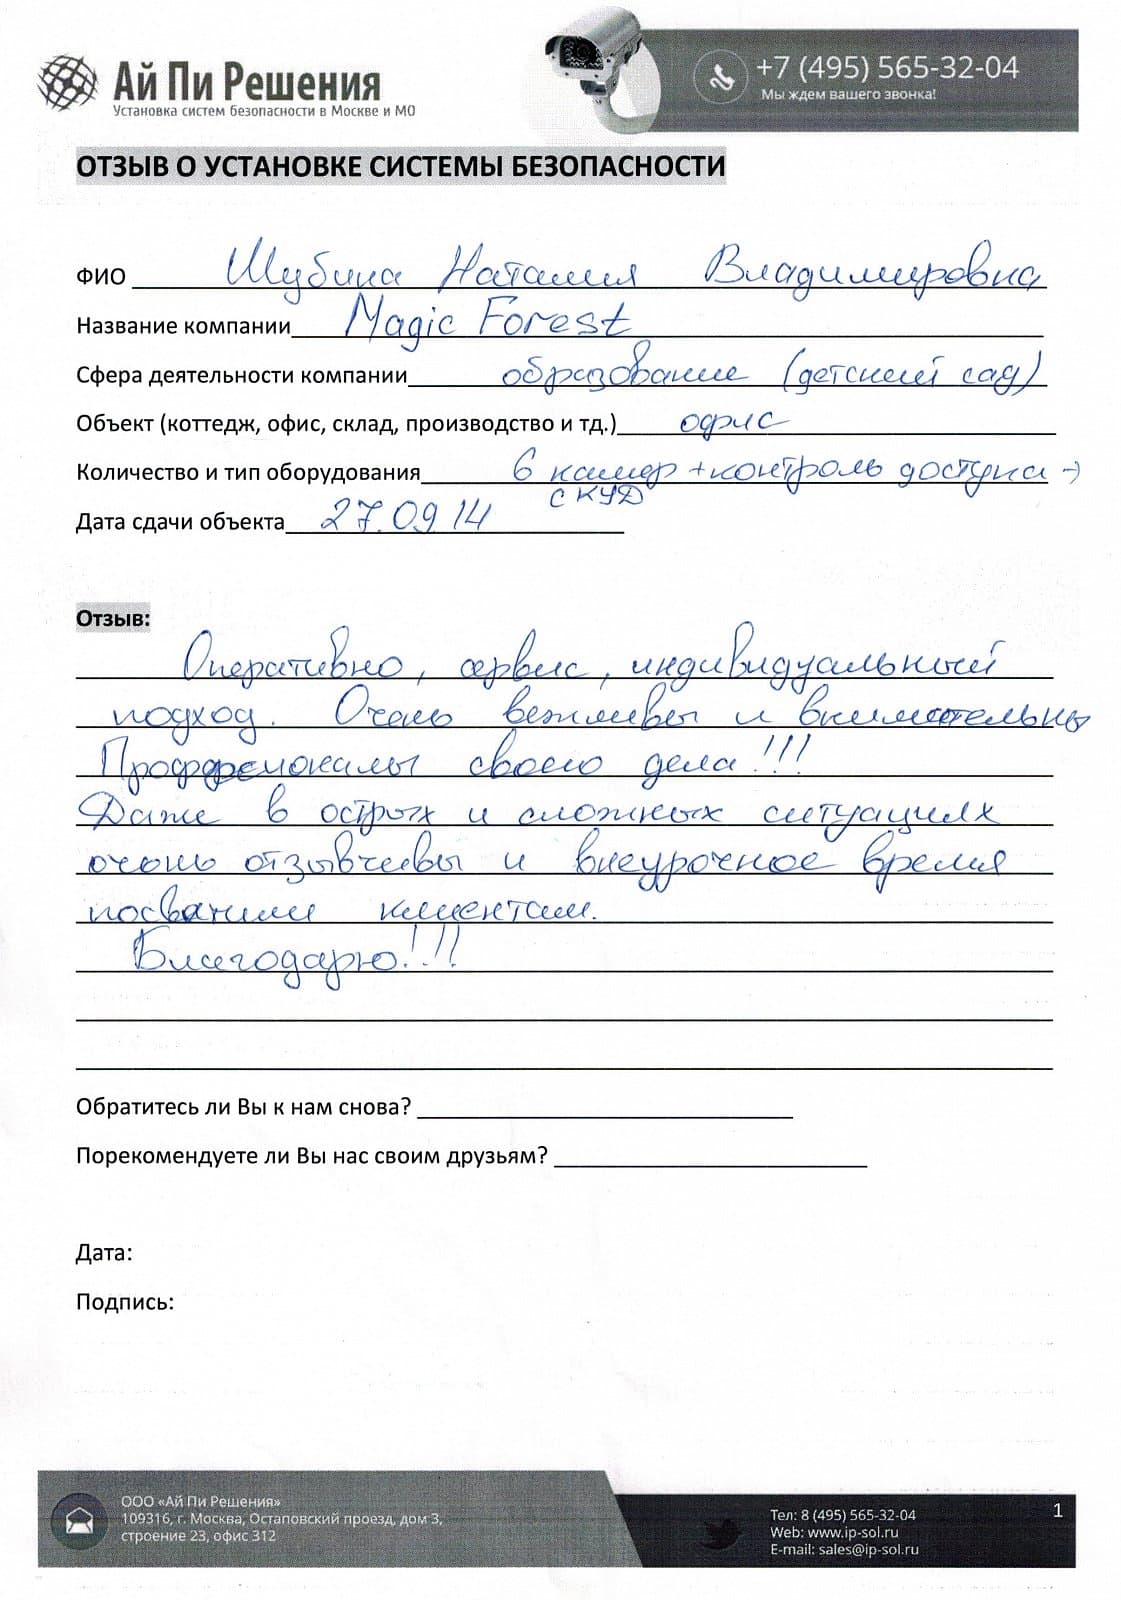 Ай Пи Решения
Установка систем безопасности в Москве и МО
+7 (495) 565-32-04
Мы ждем вашего звонка!
ОТЗЫВ О УСТАНОВКЕ СИСТЕМЫ БЕЗОПАСНОСТИ
ФИО Шубина Наталия Владимировна
Название компании Magic Forest
Сфера деятельности компании образование (детский сад)
Объект (коттедж, офис, склад, производство и тд.) офис
Количество и тип оборудования 6 камер + контроль доступа →
СКУД
Дата сдачи объекта 27.09.14
Отзыв:
Оперативно, сервис, индивидуальный
подход. Очень вежливы и внимательны
Профессионалы своего дела!!!
Даже в острых и сложных ситуациях
очень отзывчивы и внеурочное время
посвятили клиентам.
Благодарю!!!
Обратитесь ли Вы к нам снова?
Порекомендуете ли Вы нас своим друзьям?
Дата:
Подпись:
ООО «Ай Пи Решения»
109316, г. Москва, Остаповский проезд, дом 3,
строение 23, офис 312
Тел: 8 (495) 565-32-04
Web: www.ip-sol.ru
E-mail: sales@ip-sol.ru
1